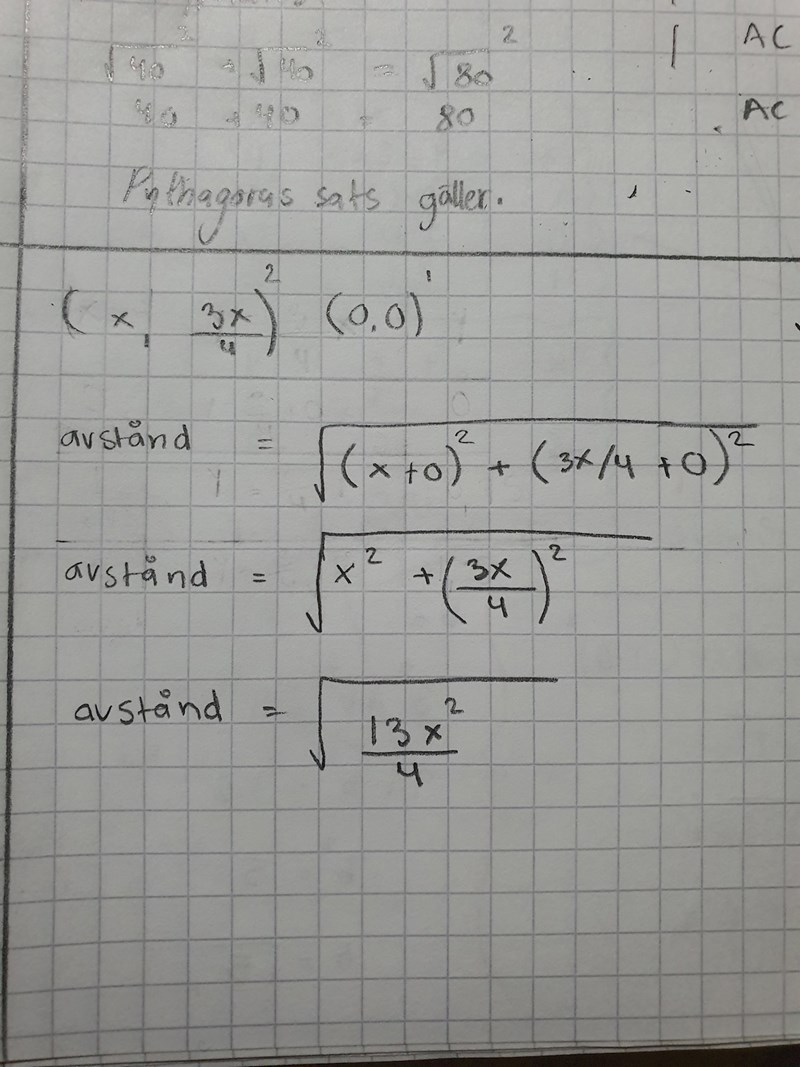 √40² + √40² = √80² AC
40 + 40 = 80 AC
Pythagoras sats gäller.
(x, 3x/4)² (0,0)¹
avstånd = √((x+0)² + (3x/4 +0)²)
avstånd = √(x² + (3x/4)²)
avstånd = √(13x²/4)